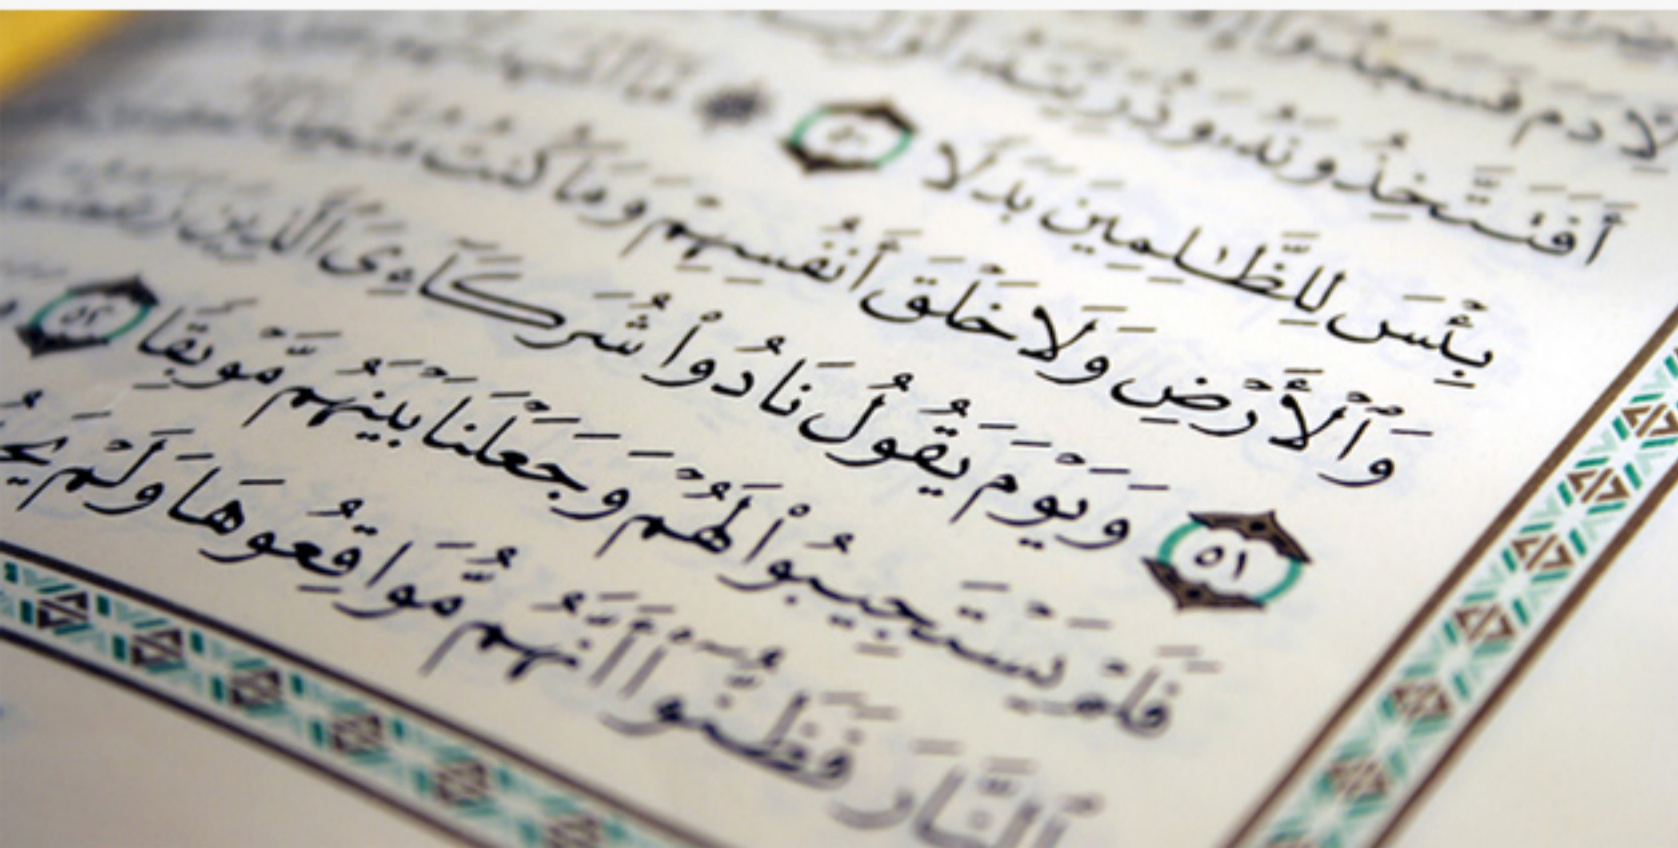 لِأَدَمَ فَسَجَدُوٓا۟
أَفَتَتَّخِذُونَهُۥ وَذُرِّيَّتَهُۥٓ أَوْلِيَآءَ
بِئْسَ لِلظَّٰلِمِينَ بَدَلًا ٥٠ ۞ مَّآ أَشْهَدتُّهُمْ
وَٱلْأَرْضِ وَلَا خَلْقَ أَنفُسِهِمْ وَمَا كُنتُ مُتَّخِذَ
٥١ وَيَوْمَ يَقُولُ نَادُوا۟ شُرَكَآءِىَ ٱلَّذِينَ زَعَمْتُمْ
فَلَمْ يَسْتَجِيبُوا۟ لَهُمْ وَجَعَلْنَا بَيْنَهُم مَّوْبِقًا ٥٢
ٱلنَّارَ فَظَنُّوٓا۟ أَنَّهُم مُّوَاقِعُوهَا وَلَمْ